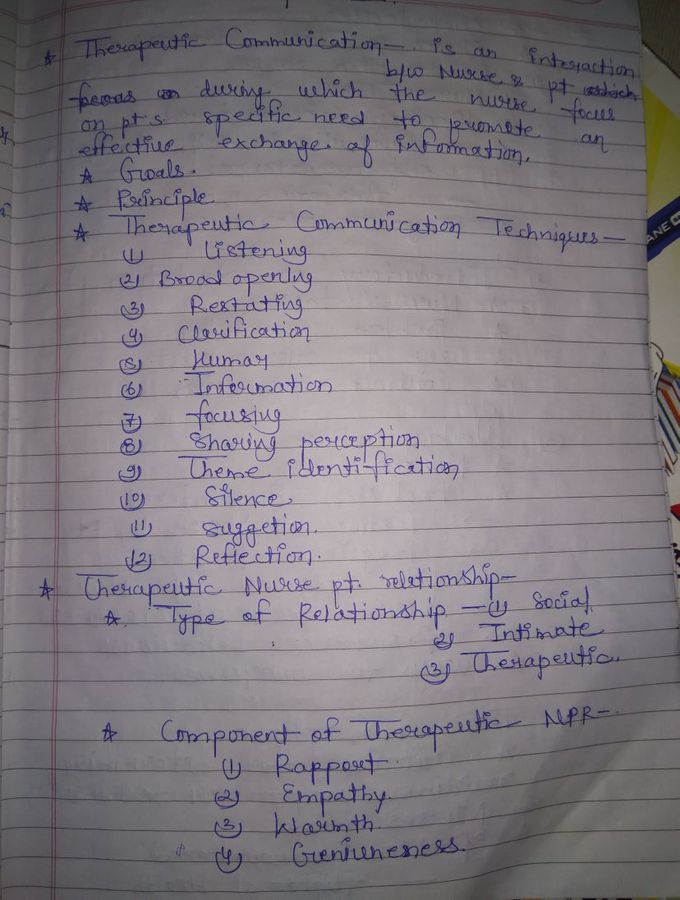 ☆ Therapeutic Communication - is an interaction
b/w Nurse & pt which
focus on during which the nurse focus
on pt's specific need to promote an
effective exchange of information.
☆ Goals.
☆ Principle
☆ Therapeutic Communication Techniques -
(1) Listening
(2) Broad opening
(3) Restating
(4) Clarification
(5) Humar
(6) Information
(7) focusing
(8) Sharing perception
(9) Theme identification
(10) Silence
(11) suggetion.
(12) Reflection.
☆ Therapeutic Nurse pt. relationship -
☆. Type of Relationship - (1) Social
(2) Intimate
(3) Therapeutic.
☆ Component of Therapeutic NPR -
(1) Rapport
(2) Empathy.
(3) Warmth.
(4) Geniuneness.
ANE